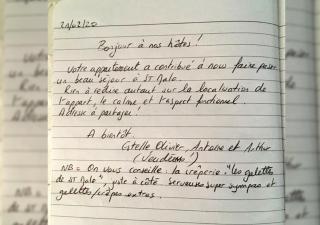 21/02/20
Bonjour à nos hôtes !
Votre appartement a contribué à nous faire passer
un beau séjour à St Malo.
Rien à redire autant sur la localisation de
l'appart, le calme et l'aspect fonctionnel.
Adresse à partager !
A bientôt.
Estelle, Olivier, Antoine et Arthur
(Vendéens)
NB = On vous conseille la crêperie "Les galettes
de St Malo" juste à côté. Serveuses super sympas et
galettes/crêpes extras.